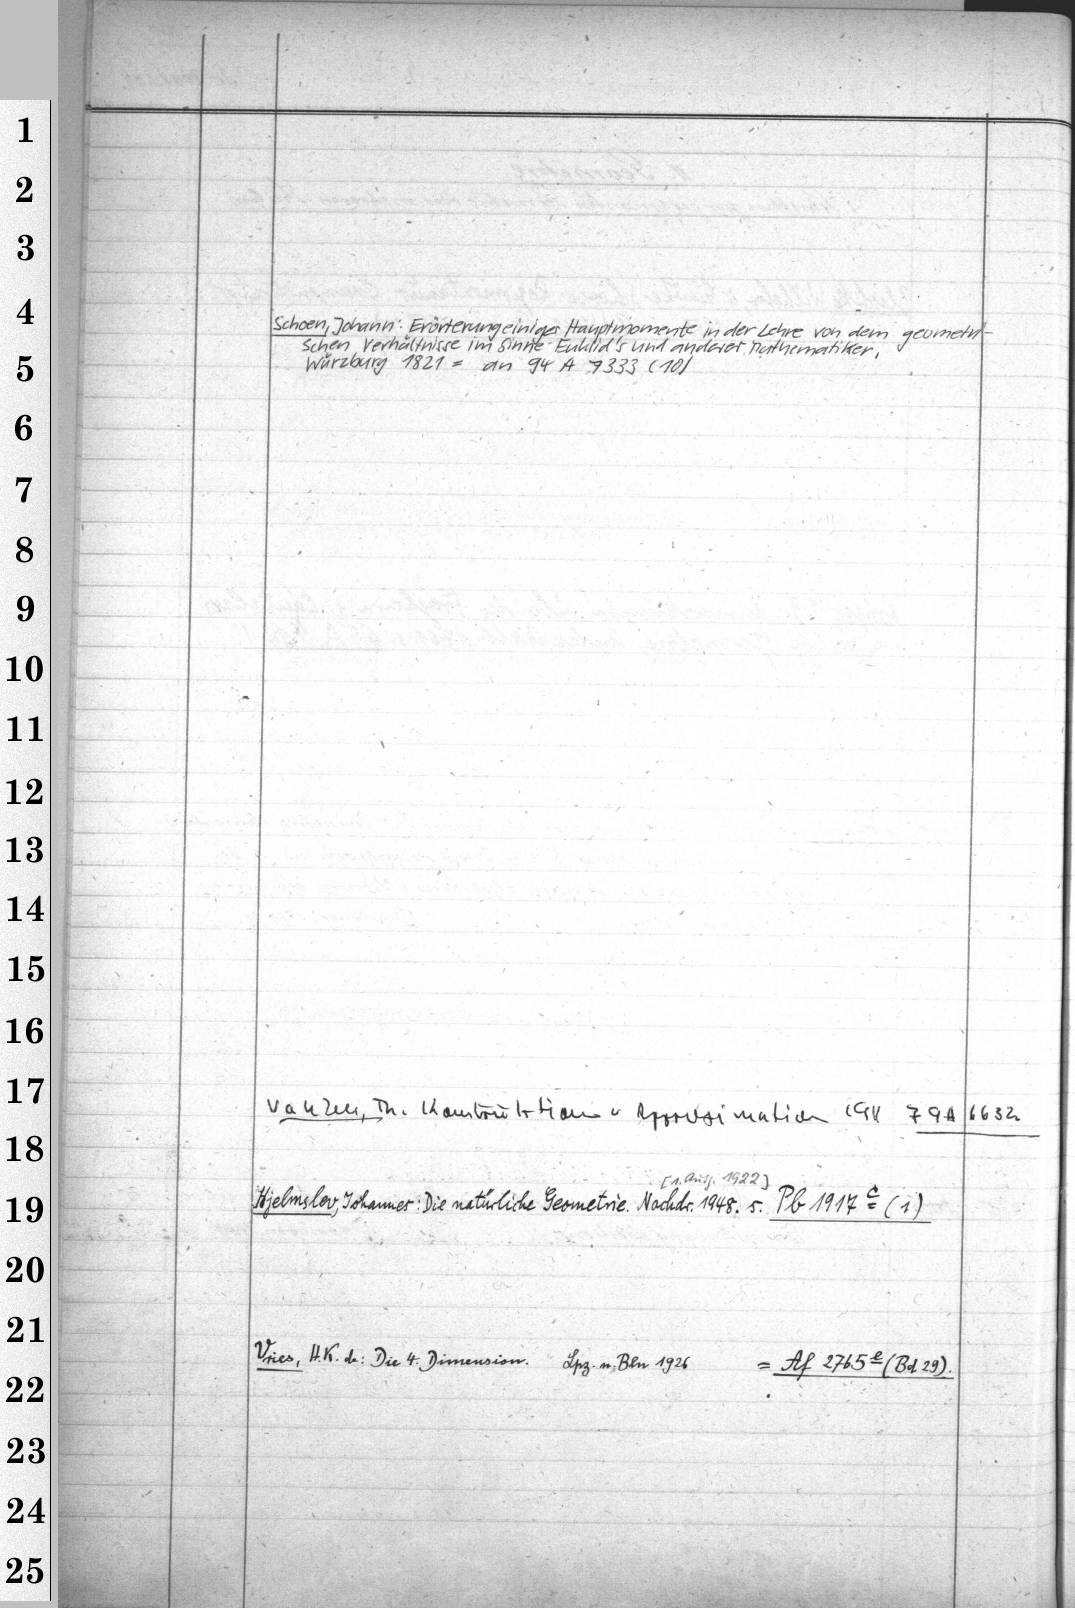 1
2
3
4
Schoen, Johann: Erörterung einiger Hauptmomente in der Lehre von dem geometri-
schen Verhältnisse im Sinne Euklid's und anderer Mathematiker,
Würzburg 1821 = an 94 A 7333 (10)
5
6
7
8
9
10
11
12
13
14
15
16
17
Th. Konstruktion u Approximation 79A 6632
18
[1. Aufg. 1922]
Hjelmslev, Johannes: Die natürliche Geometrie. Nachdr. 1948. s. Pb 1917 c (1)
19
20
21
Vries, H.K. de: Die 4. Dimension. Lpz. u. Bln 1926 = Af 2765 e (Bd 29).
22
23
24
25